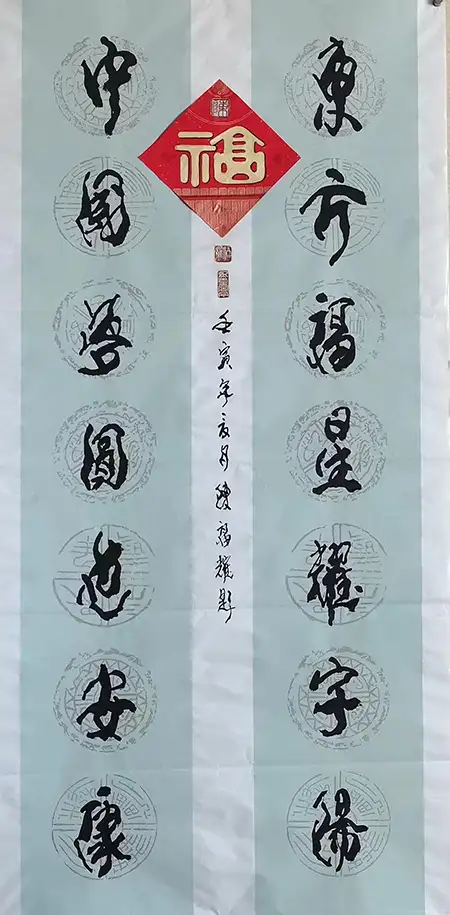 東方福星耀宇陽
中國夢圓迎安康
福
壬寅年夏月陳福耀題